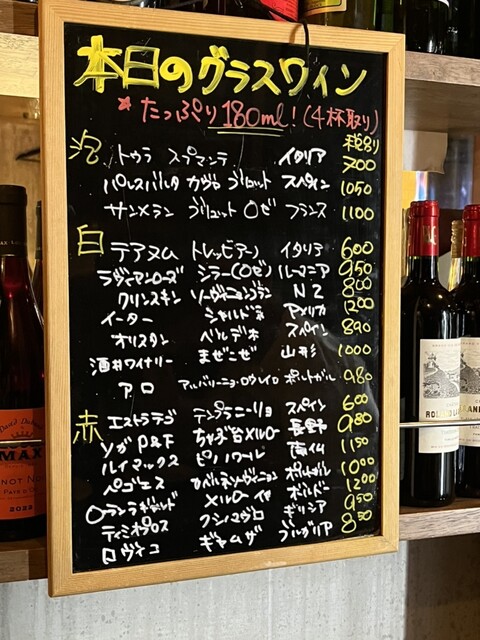 本日のグラスワイン
*たっぷり180ml!(4杯取り)
税別
泡 トウラ スプマンテ イタリア 700
パレスバルタ カヴァ ブリュット スペイン 1050
サンメラン ブリュット ロゼ フランス 1100
白 テアヌム トレッビアーノ イタリア 600
ラヴァーマンローズ シラー(ロゼ) ルーマニア 950
クリンスキン ソーヴィニヨンブラン NZ 800
イーター シャルドネ アメリカ 1200
オリスタン ベルデホ スペイン 890
酒井ワイナリー まぜこぜ 山形 1000
アロ アルバリーニョ・ロウレイロ ポルトガル 980
赤 エストラテゴ テンプラニーリョ スペイン 600
ソガ P&F ちゃぶ台メルロー 長野 980
ルイマックス ピノノワール 南仏 1150
ペゴエス カベルネソーヴィニヨン ポルトガル 1000
メルロー イセ ボルドー 1200
ティミオプロス クシノマヴロ ギリシア 950
ロヴィコ ギャムザ ブルガリア 850
MAX
PINOT NO
PAYS D'OC
2022